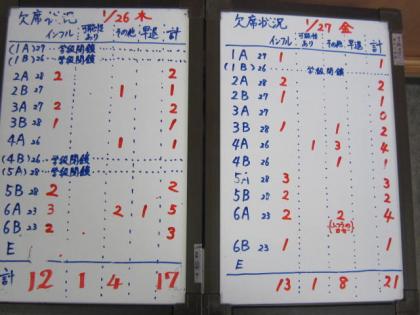 欠席状況 1/26 木
インフル 可能性あり その他 早退 計
(1A)27 学級閉鎖
(1B)26 学級閉鎖
2A 28 2 2
2B 27 1 1
3A 27 2 2
3B 28 1 1
4A 26 1 1
(4B)26 学級閉鎖
(5A)28 学級閉鎖
5B 28 2 2
6A 23 3 2 1 5
6B 23 2 3
E
計 12 1 4 17
欠席状況 1/27 金
インフル 可能性あり その他 早退 計
1A 27 1 1
(1B)26 学級閉鎖
2A 28 2 2
2B 27 1 1
3A 27 0
3B 28 1 1 2
4A 26 1 3 4
4B 26 1 1
5A 28 3 3
5B 28 2 2
6A 23 2 2 4
6B 23 1 1 1
E
計 13 1 8 21